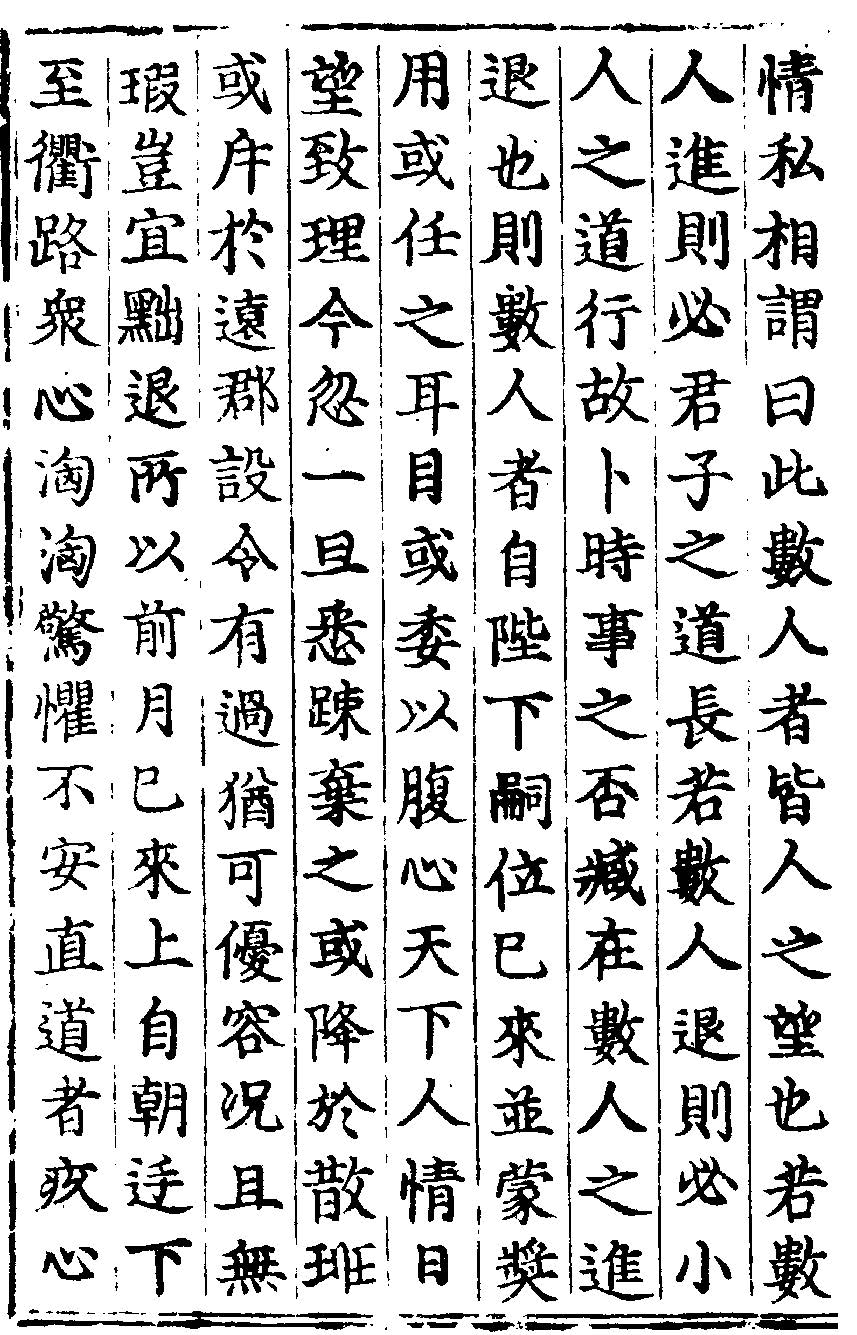 情私相謂曰此數人者皆人之望也若數
人進則必君子之道長若數人退則必小
人之道行故卜時事之否臧在數人之進
退也則數人者自陛下嗣位已來並蒙奬
用或任之耳目或委以腹心天下人情日
望致理今忽一旦悉踈棄之或降於散班
或斥於遠郡設令有過猶可優容况且無
瑕豈宜黜退所以前月已來上自朝廷下
至衢路衆心洶洶驚懼不安直道者疚心